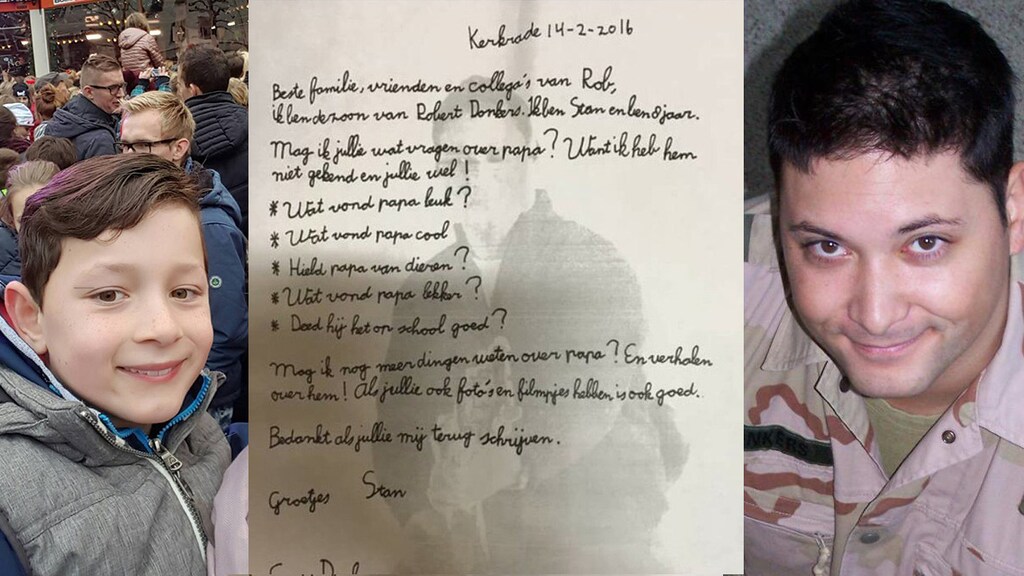 Kerkrade 14-2-2016
Beste familie, vrienden en collega's van Rob,
ik ben de zoon van Robert Donkers. Ik ben Stan en ben 8 jaar.
Mag ik jullie wat vragen over papa? Want ik heb hem
niet gekend en jullie wel!
* Wat vond papa leuk?
* Wat vond papa cool
* Hield papa van dieren?
* Wat vond papa lekker?
* Deed hij het op school goed?
Mag ik nog meer dingen weten over papa? En verhalen
over hem! Als jullie ook foto's en filmpjes hebben is ook goed.
Bedankt als jullie mij terug schrijven.
Groetjes Stan
NKERS